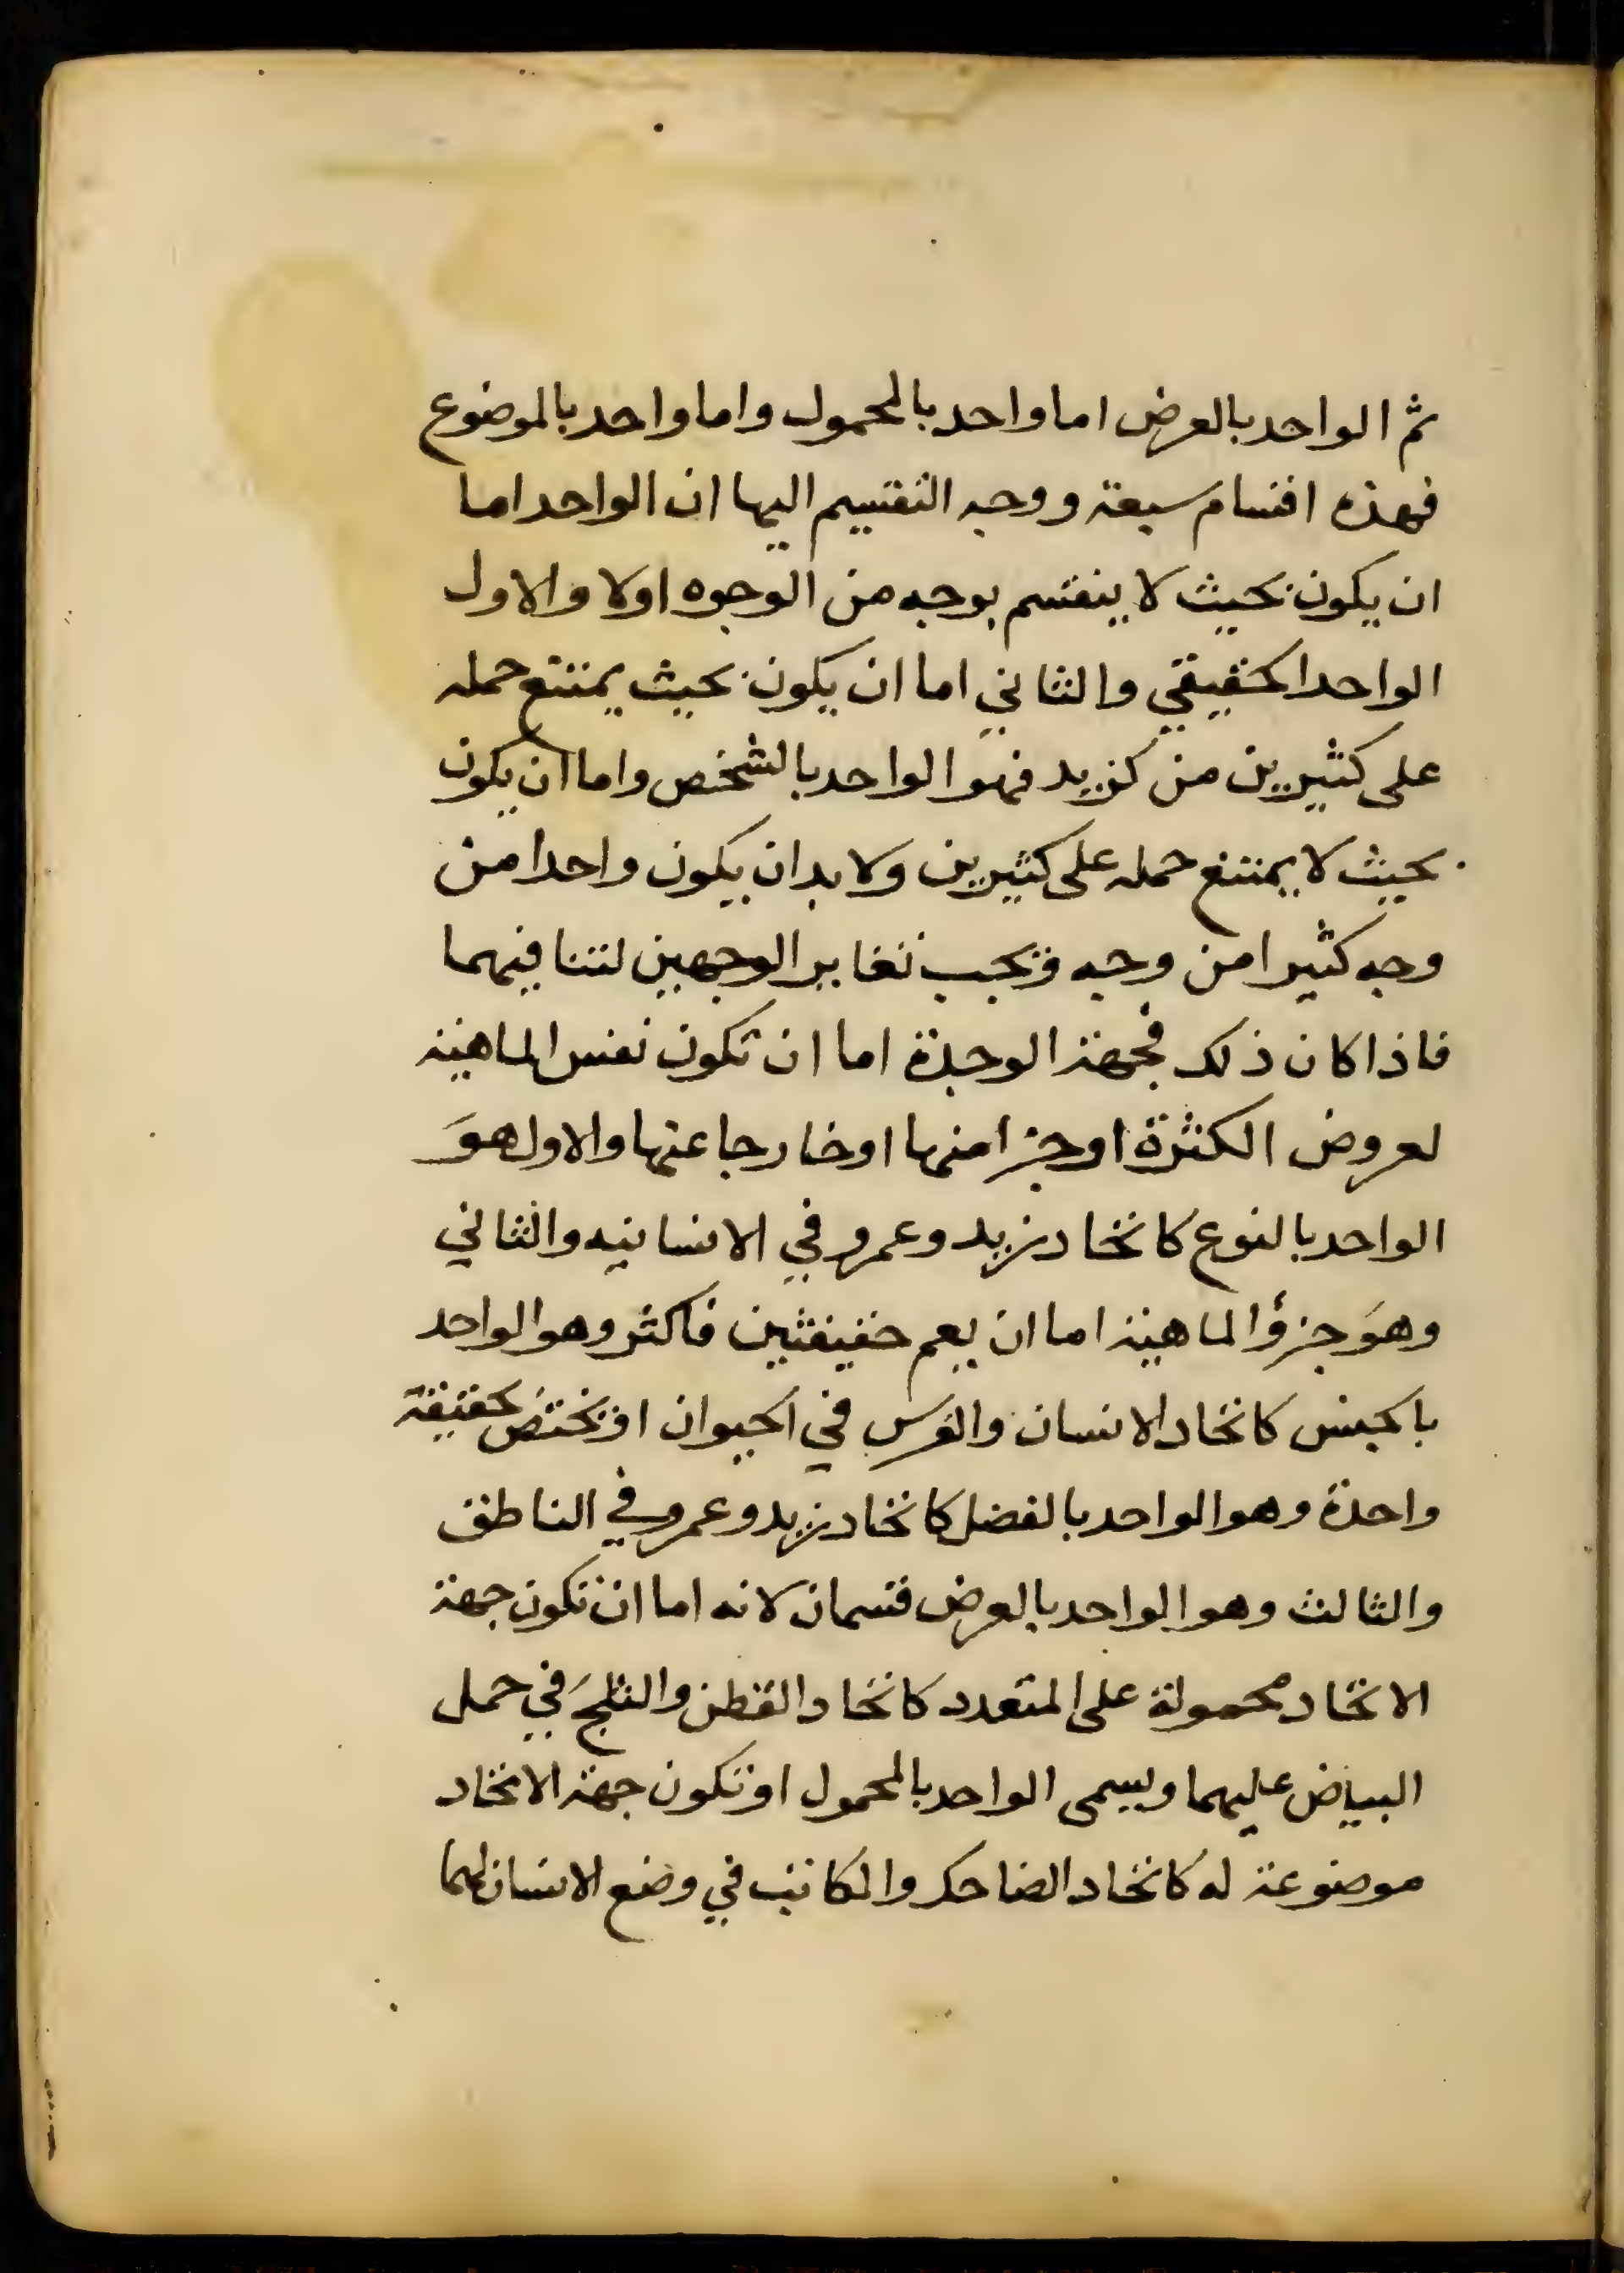 ثم الواحد بالعرض اما واحد بالمحمول واما واحد بالموضوع
فهذه اقسام سبعة ووجه التقسيم اليها ان الواحد اما
ان يكون بحيث لا ينقسم بوجه من الوجوه اولا والاول
الواحد الحقيقي والثاني اما ان يكون بحيث يمتنع حمله
على كثيرين من كزيد فهو الواحد بالشخص واما ان يكون
بحيث لا يمتنع حمله على كثيرين ولا بد ان يكون واحدا من
وجه كثيرا من وجه ويجب تغاير الوجهين لتنافيهما
فاذا كان ذلك فجهة الوحدة اما ان تكون نفس الماهية
لعروض الكثرة او جزا منها او خارجا عنها والاول هو
الواحد بالنوع كاتحاد زيد وعمرو في الانسانيه والثاني
وهو جزؤ الماهية اما ان يعم حقيقتين فاكثر وهو الواحد
بالجنس كاتحاد الانسان والفرس في الحيوان او يختص بحقيقة
واحدة وهو الواحد بالفصل كاتحاد زيد وعمرو في الناطق
والثالث وهو الواحد بالعرض قسمان لانه اما ان تكون جهة
الاتحاد محمولة على المتعدد كاتحاد القطن والثلج في حمل
البياض عليهما ويسمى الواحد بالمحمول او تكون جهة الاتحاد
موضوعة له كاتحاد الضاحك والكاتب في وضع الانسان لهما